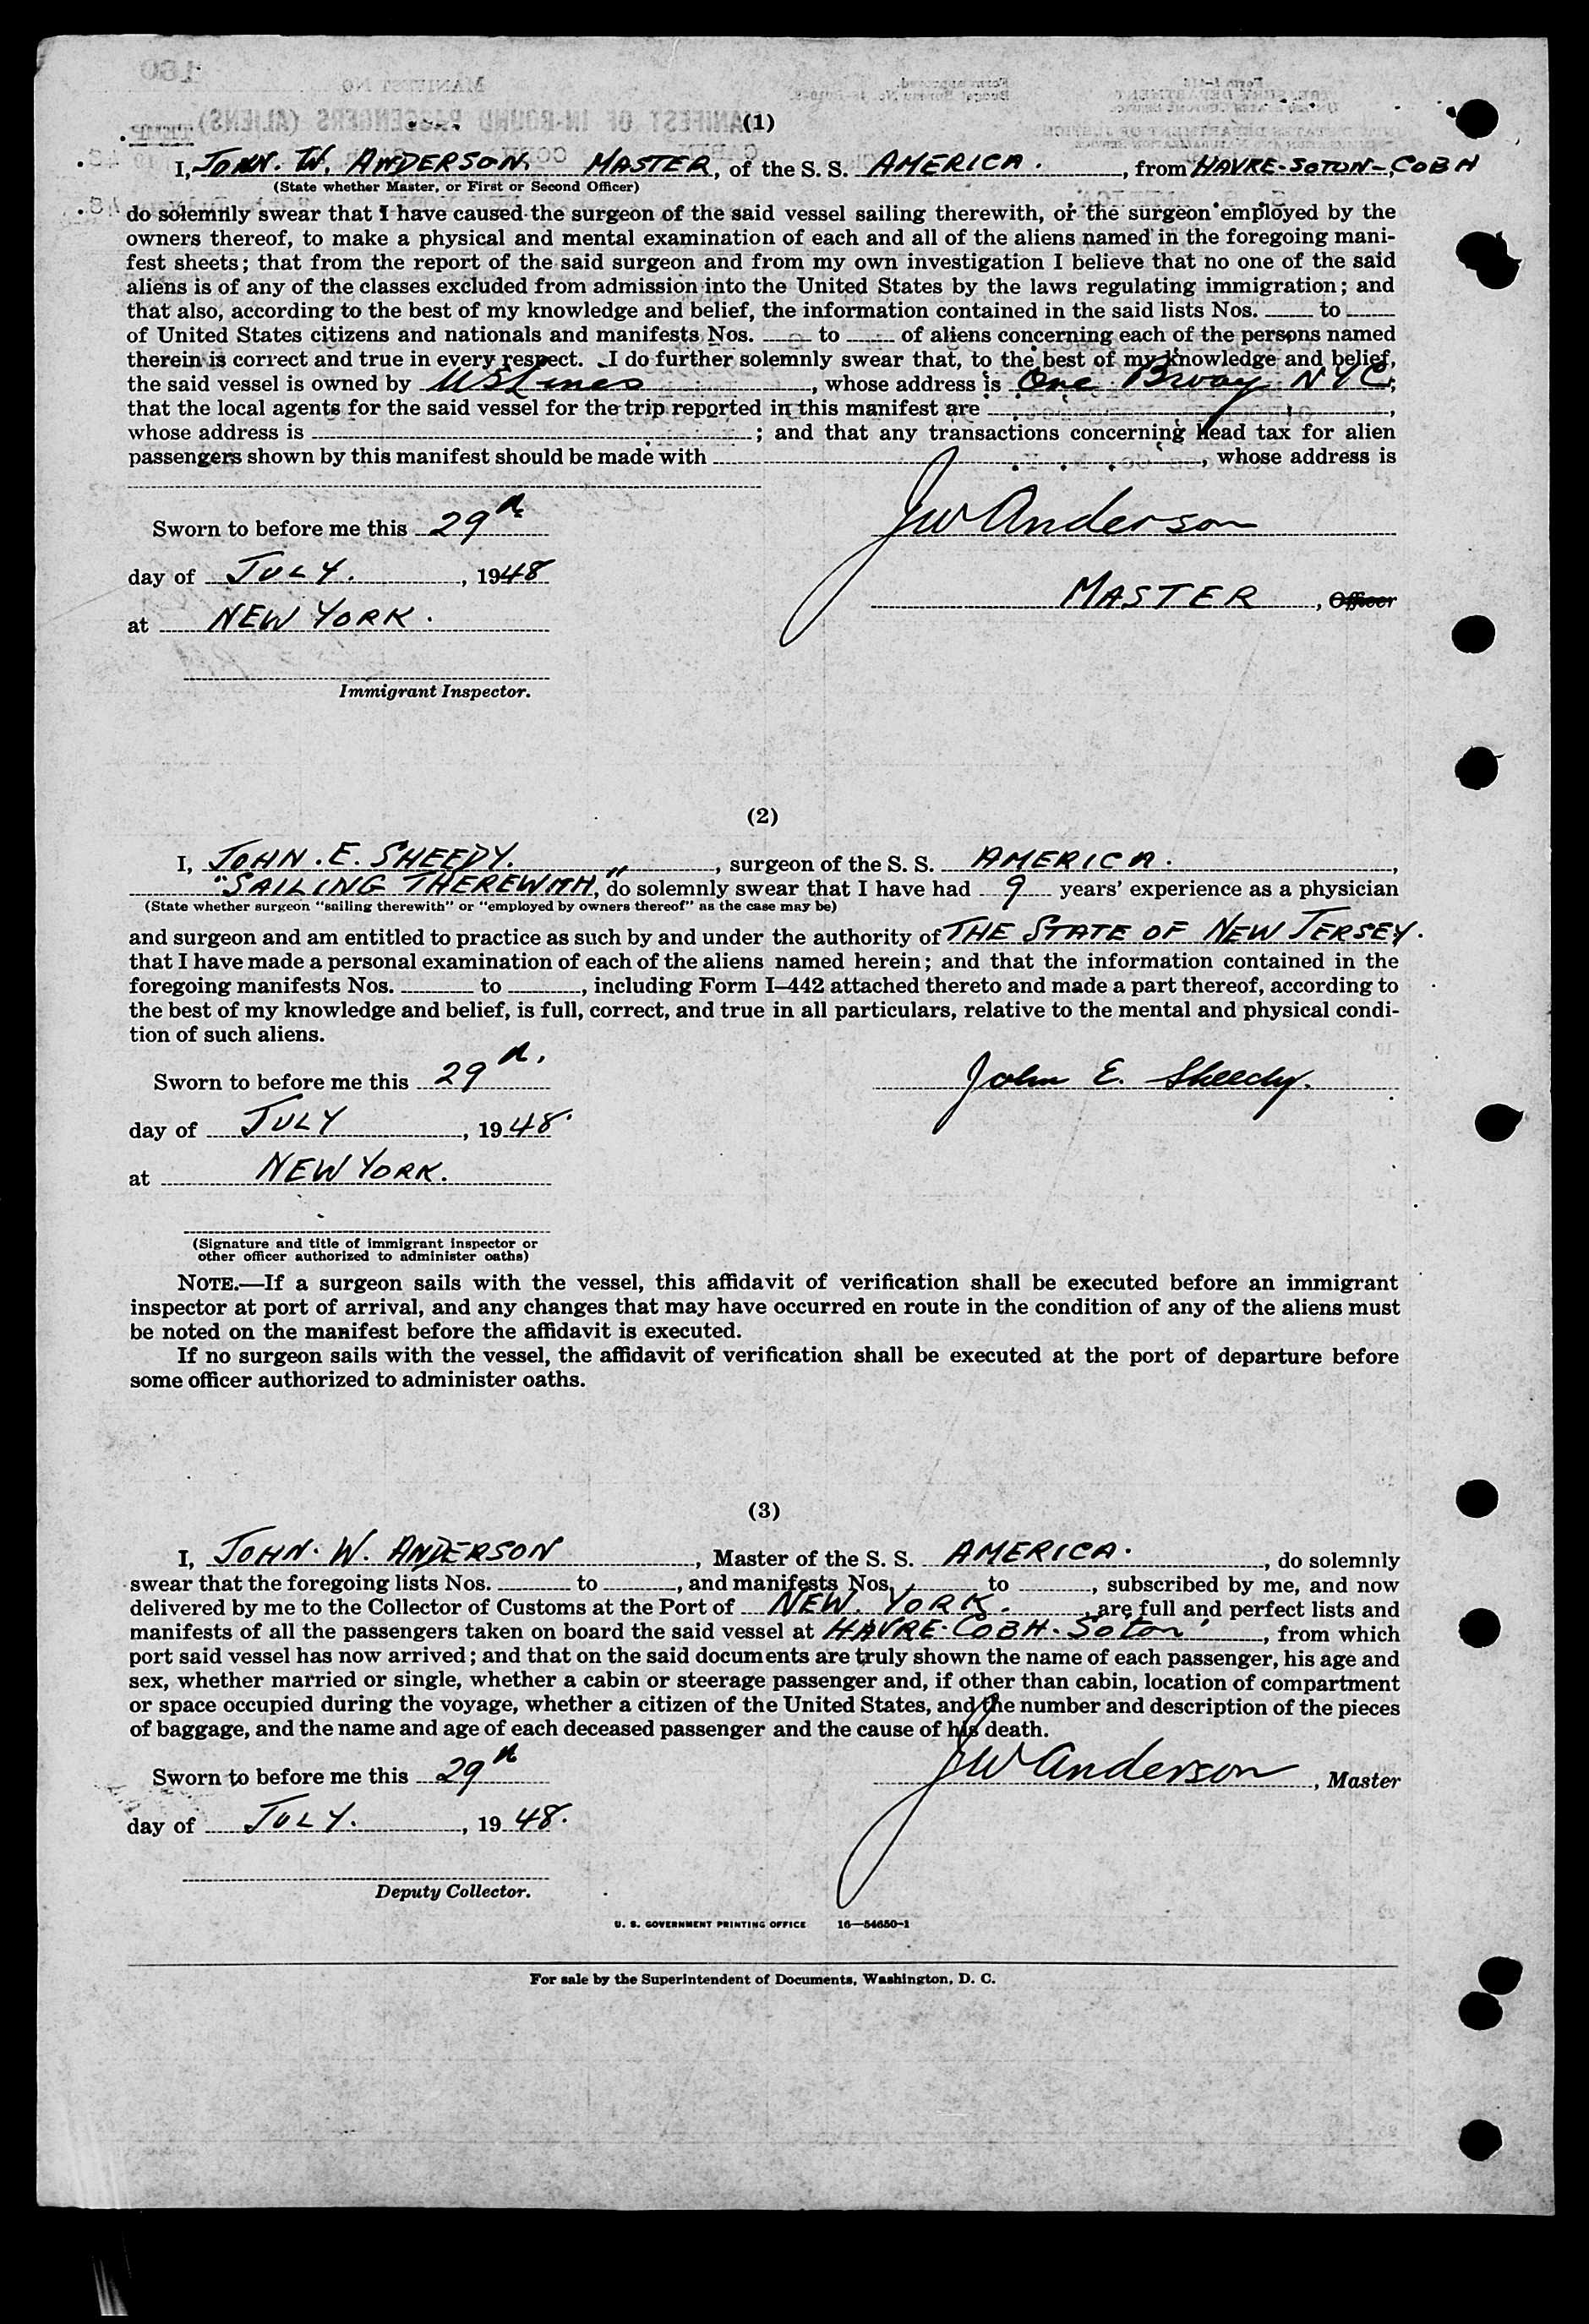 (1)
I, JOHN. W. ANDERSON. MASTER, of the S. S. AMERICA. , from HAVRE-SOTON-COBH
(State whether Master, or First or Second Officer)
do solemnly swear that I have caused the surgeon of the said vessel sailing therewith, or the surgeon employed by the
owners thereof, to make a physical and mental examination of each and all of the aliens named in the foregoing mani-
fest sheets; that from the report of the said surgeon and from my own investigation I believe that no one of the said
aliens is of any of the classes excluded from admission into the United States by the laws regulating immigration; and
that also, according to the best of my knowledge and belief, the information contained in the said lists Nos. ____ to ____
of United States citizens and nationals and manifests Nos. ____ to ____ of aliens concerning each of the persons named
therein is correct and true in every respect. I do further solemnly swear that, to the best of my knowledge and belief,
the said vessel is owned by US Lines, whose address is One Bway NYC;
that the local agents for the said vessel for the trip reported in this manifest are ____,
whose address is ____; and that any transactions concerning head tax for alien
passengers shown by this manifest should be made with ____, whose address is
Sworn to before me this 29th
JW Anderson
day of JULY. , 1948
MASTER, Officer
at NEW YORK.
Immigrant Inspector.
(2)
I, JOHN. E. SHEEDY. , surgeon of the S. S. AMERICA. ,
"SAILING THEREWITH," do solemnly swear that I have had 9 years' experience as a physician
(State whether surgeon "sailing therewith" or "employed by owners thereof" as the case may be)
and surgeon and am entitled to practice as such by and under the authority of THE STATE OF NEW JERSEY.
that I have made a personal examination of each of the aliens named herein; and that the information contained in the
foregoing manifests Nos. ____ to ____, including Form I-442 attached thereto and made a part thereof, according to
the best of my knowledge and belief, is full, correct, and true in all particulars, relative to the mental and physical condi-
tion of such aliens.
Sworn to before me this 29th.
John E. Sheedy.
day of JULY, 1948.
at NEW YORK.
(Signature and title of immigrant inspector or
other officer authorized to administer oaths)
NOTE.—If a surgeon sails with the vessel, this affidavit of verification shall be executed before an immigrant
inspector at port of arrival, and any changes that may have occurred en route in the condition of any of the aliens must
be noted on the manifest before the affidavit is executed.
If no surgeon sails with the vessel, the affidavit of verification shall be executed at the port of departure before
some officer authorized to administer oaths.
(3)
I, JOHN. W. ANDERSON, Master of the S. S. AMERICA. , do solemnly
swear that the foregoing lists Nos. ____ to ____, and manifests Nos. ____ to ____, subscribed by me, and now
delivered by me to the Collector of Customs at the Port of NEW YORK. , are full and perfect lists and
manifests of all the passengers taken on board the said vessel at HAVRE-COBH-Soton, from which
port said vessel has now arrived; and that on the said documents are truly shown the name of each passenger, his age and
sex, whether married or single, whether a cabin or steerage passenger and, if other than cabin, location of compartment
or space occupied during the voyage, whether a citizen of the United States, and the number and description of the pieces
of baggage, and the name and age of each deceased passenger and the cause of his death.
Sworn to before me this 29th
JW Anderson, Master
day of JULY. , 1948.
Deputy Collector.
U. S. GOVERNMENT PRINTING OFFICE 16—54650-1
For sale by the Superintendent of Documents, Washington, D. C.